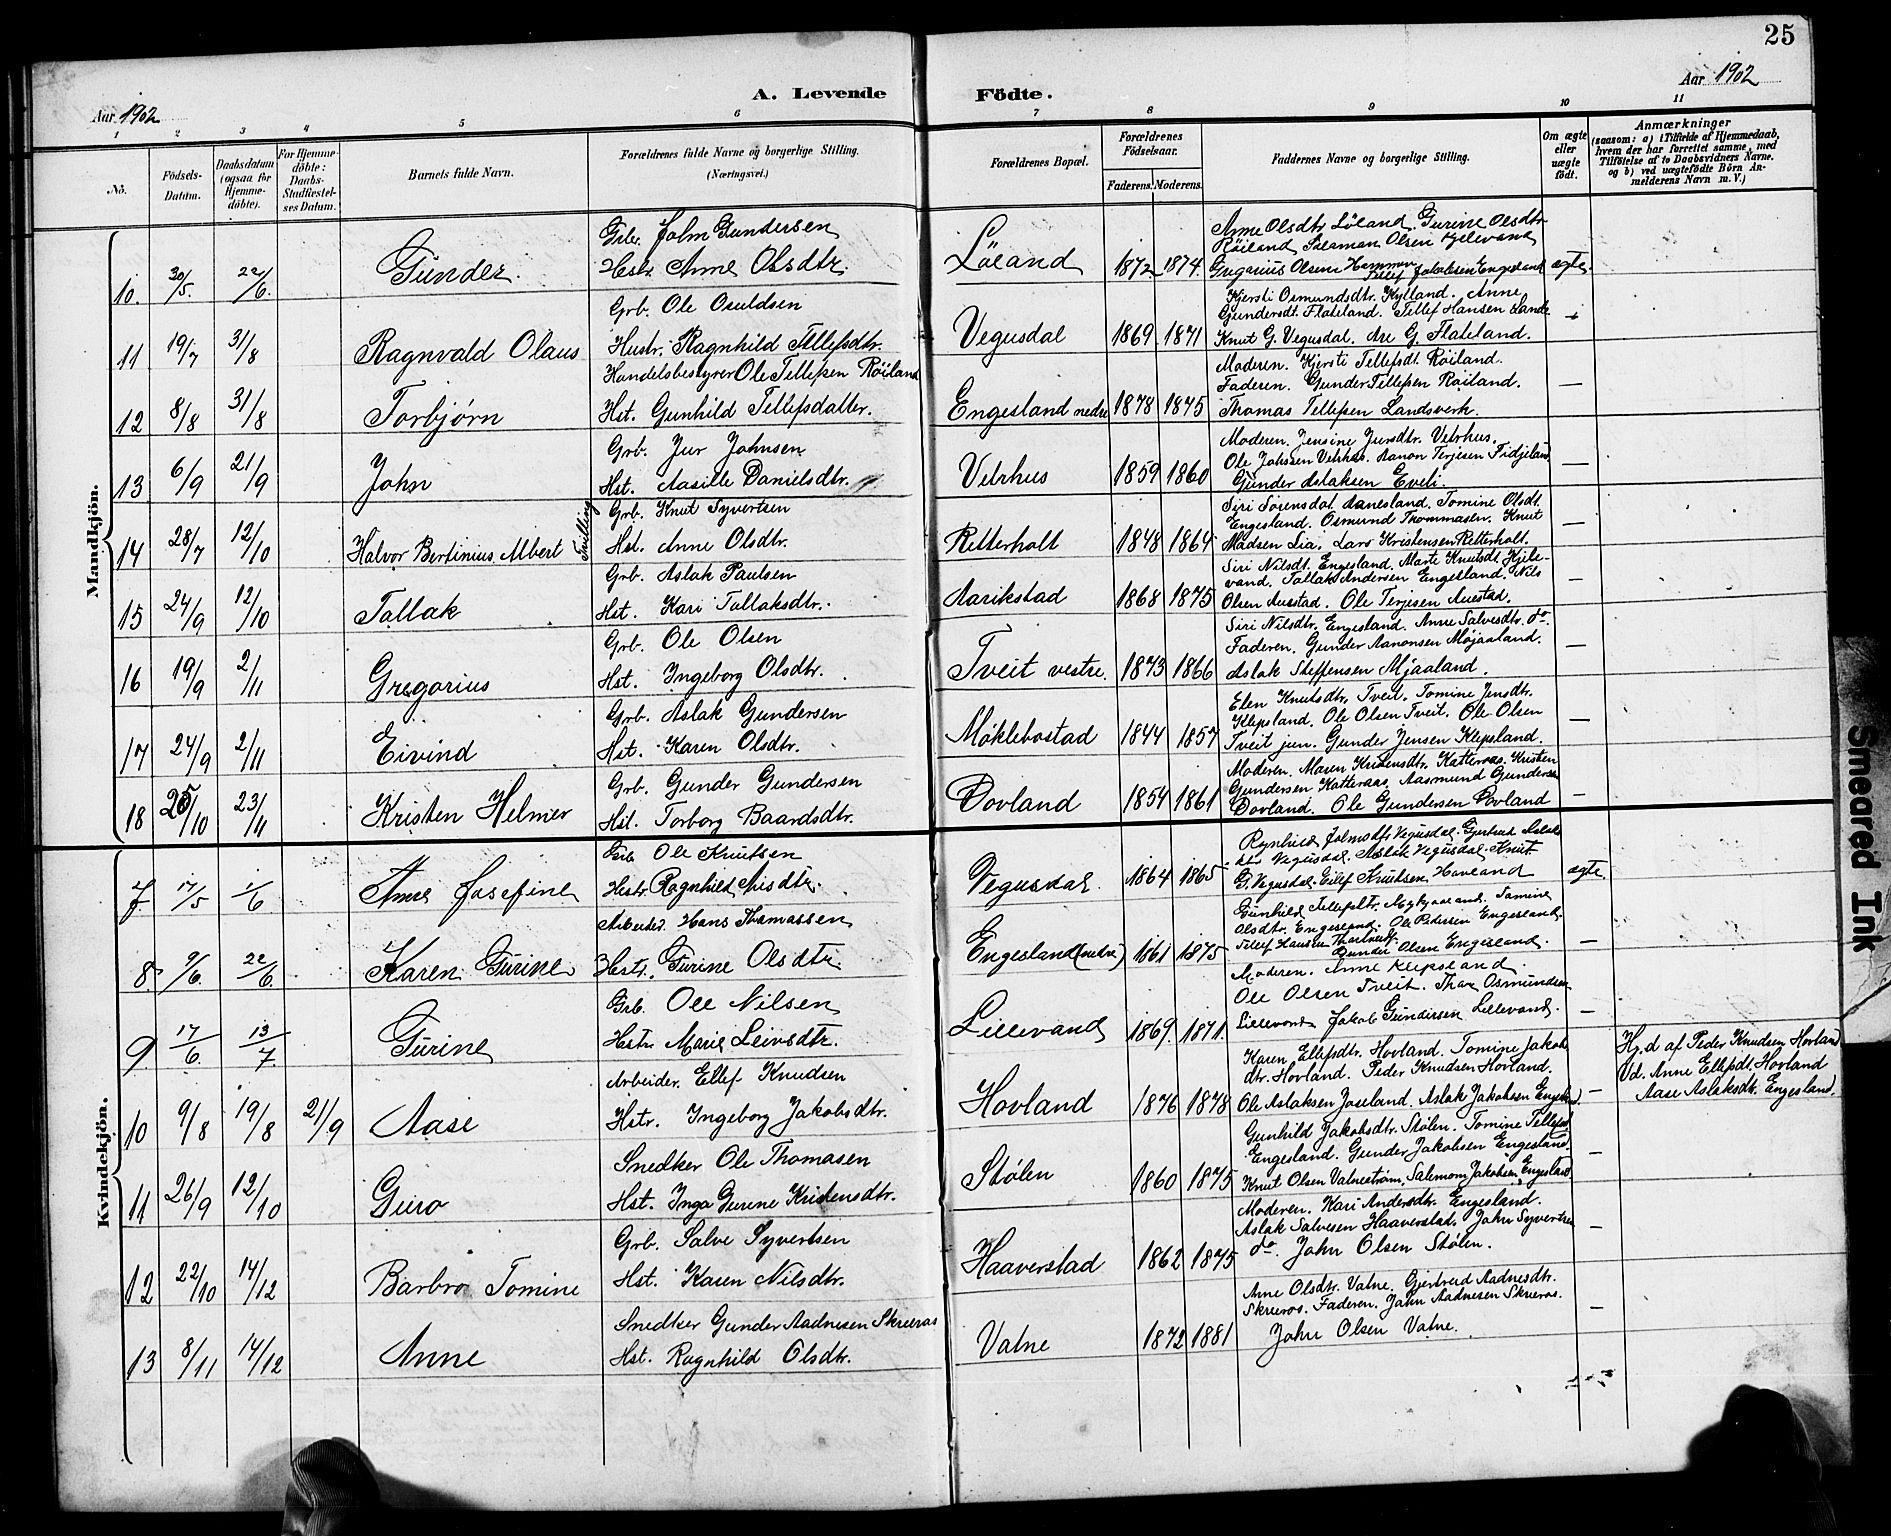 25
Aar 1902
A. Levende Födte.
Aar 1902
1 2 3 4 5 6 7 8 9 10 11
No.
Födsels-Datum.
Daabsdatum (ogsaa for Hjemmedöbte).
For Hjemmedöbte: Daabs-Stadfæstelses Datum.
Barnets fulde Navn.
Forældrenes fulde Navne og borgerlige Stilling.
(Næringsvei.)
Forældrenes Bopæl.
Forældrenes Födselsaar.
Faderens. Moderens.
Faddernes Navne og borgerlige Stilling.
Om ægte eller uægte født.
Anmærkninger
(saasom: a) i Tilfælde af Hjemmedaab,
hvem der har forrettet samme, med
Tilföielse af to Daabsvidners Navne.
og b) ved uægtefödte Börn An-
melderens Navn m. V.)
Mandkjön.
10. 30/5. 22/6. Gunder.
Grb. John Gundersen
Hstr. Anne Olsdtr.
Löland 1872 1874.
Anne Olsdtr Löland, Gurine Olsdtr
Röiland Salamon Olsen Kjelevand
Gregarius Olsen Hammer Jakobsen Engesland ægte.
11 19/7 31/8 Ragnvald Olaus
Grb. Ole Osuldsen
Hustr. Ragnhild Tellefsdtr.
Vegusdal 1869 1871
Kjersti Osmundsdtr. Kylland. Anne
Gundersdt. Flateland. Tellef Hansen
Knut G. Vegusdal. Are G. Flateland.
12 8/8 31/8 Torbjørn
Handelsbestyrer Ole Tellefsen Röiland
Hst. Gunhild Tellefsdatter.
Engesland nedre 1878 1875
Moderen. Kjersti Tellefsdt. Röiland.
Faderen. Gunder Tellefsen Röiland. —
Thomas Tellefsen Landsverk.
13 6/9 21/9 John
Grb. Jur Johnsen
Hst. Aasille Danielsdtr.
Vetrhus 1859 1860
Moderen. Jensine Jursdtr. Vetrhus.
Ole Johnsen Vetrhus. Aanon Terjesen Fidjeland —
Gunder Aslaksen Eveli.
14 28/7 12/10 Halvor Bertinius Albert Tvilling
Grb. Knut Syvertsen
Hst. Anne Olsdtr.
Retterholt 1848 1864
Siri Sörensdat. Aanesland. Tomine Olsdt.
Engesland. Osmund Thommasen. Knut —
Madsen Lia. Lars Kristensen Retterholt.
15 24/9 12/10 Tallak
Grb. Aslak Paulsen
Hst. Kari Tallaksdtr.
Aarikstad 1868 1875
Siri Nilsdt. Engesland. Marte Knutsdt. Kjele-
vand. Tallak Andersen Engesland. Nils —
Olsen Auestad. Ole Terjesen Auestad.
16 19/9 2/11 Gregorius
Grb. Ole Olsen
Hst. Ingeborg Olsdtr.
Tveit vestre. 1873 1866
Siri Nilsdtr. Engesland. Anne Salvesdtr. do.
Faderen. Gunder Aanonsen Mjaaland. —
Aslak Steffensen Mjaaland.
17 24/9 2/11 Eivind
Grb. Aslak Gundersen
Hst. Karen Olsdtr.
Møklebostad 1844 1857
Elen Knutsdtr. Tveit. Tomine Jensdtr.
Klepsland. Ole Olsen Tveit. Ole Olsen —
Tveit jun. Gunder Jensen Klepsland.
18 25/10 23/11 Kristen Helmer
Grb. Gunder Gundersen
Hst. Torborg Baardsdtr.
Dovland 1854 1861
Moderen. Maren Kristensdtr. Katteraas. Kristen
Gundersen Katteraas. Aasmund Gundersen
Dovland. Ole Gundersen Dovland —
Kvindekjön.
7. 17/5 1/6 Anne Josefine
Grb Ole Knutsen
Hstr. Ragnhild Nilsdtr.
Vegusdal. 1864 1865
Ragnhild Johnsdtr Vegusdal. Gjertrud Aslaks
dtr Vegusdal. Aslak Vegusdal. Knut
G. Vegusdal. Eilef Knutsen Hovland ægte.
8. 9/6. 22/6. Karen Gurine
Arbeider. Hans Thomassen
Hstr. Gurine Olsdtr.
Engesland (nedre) 1861 1875
Gunhild Tellefsdtr. Tomine
Olsdtr. Engesland. Ole Pedersen Engesland.
Tellef Hansen Gunder Olsen Engesland. —
9. 17/6 13/7. Gurine
Grb. Ole Nilsen
Hstr. Marie Leivsdtr.
Lillevand 1869. 1871.
Moderen. Anne Klepsland.
Ole Olsen Tveit. Thor Osmundsen
Lillevand. Jakob Gundersen Lillevand. —
10 9/8 19/8 21/9 Aase
Arbeider. Ellef Knudsen
Hstr. Ingeborg Jakobsdtr.
Hovland 1876 1878
Karen Ellefsdtr. Hovland. Tomine Jakobs
dtr. Hovland. Peder Knudsen Hovland.
Ole Aslaksen Joseland. Aslak Jakobsen Engesland. —
Hj.d af Peder Knudsen Hovland
Vd. Anne Ellefsdt. Hovland
Aase Aslaksdtr. Engesland.
11 26/9 12/10 Guro
Snedker Ole Thomasen
Hst. Inga Gurine Kristensdtr.
Stølen 1860 1875
Gunhild Jakobsdtr. Stølen. Tomine Tellefsdt
Engesland. Gunder Jakobsen Engesland —
Knut Olsen Valnestrøm, Salemon Jakobsen Engesland
12 22/10 14/12 Barbro Tomine
Grb. Salve Syvertsen
Hst. Karen Nilsdtr.
Haaverstad 1862 1875
Moderen. Kari Andersdtr. Engesland.
Aslak Salvesen Haaverstad. John Syvertsen —
do. John Olsen Stølen.
13 8/11 14/12 Anne
Snedker Gunder Aadnesen Skreros
Hst. Ragnhild Olsdtr.
Vatne 1872 1881
Anne Olsdtr. Vatne. Gjertrud Aadnesdtr.
Skreros. Faderen. John Aadnesen Skreros. —
John Olsen Vatne.
Smeared Ink